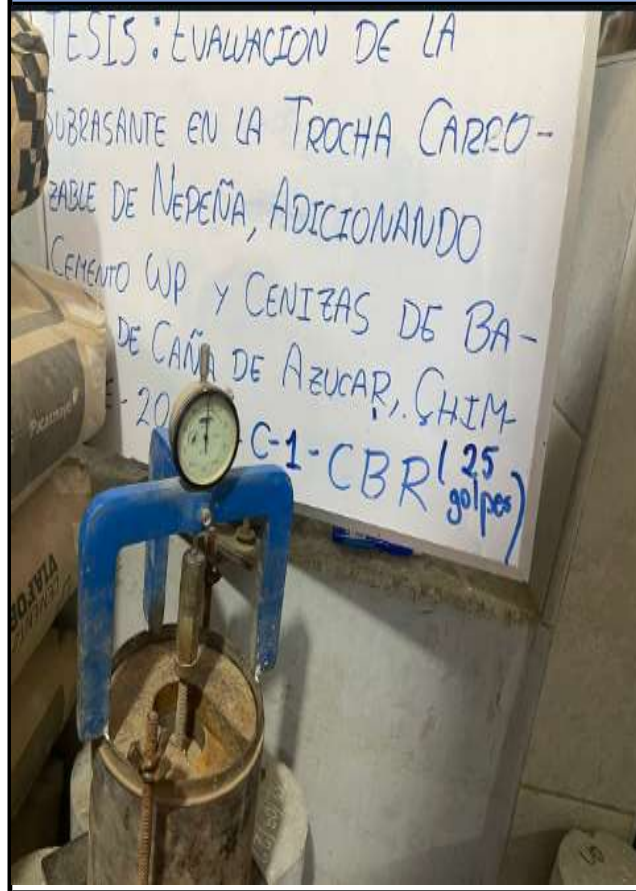 TESIS: EVALUACIÓN DE LA
SUBRASANTE EN LA TROCHA CARRO-
ZABLE DE NEPEÑA, ADICIONANDO
CEMENTO WP Y CENIZAS DE BA-
DE CAÑA DE AZUCAR, CHIM-
20
C-1-CBR (25
golpes)
Pacasmayo